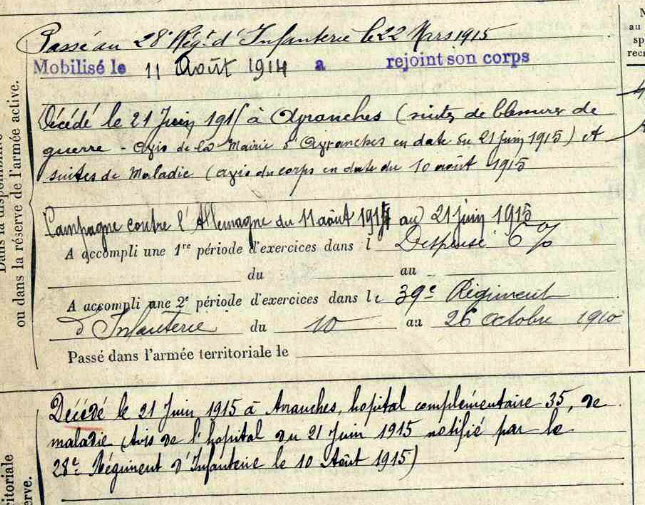 Passé au 28e Régt d'Infanterie le 22 Mars 1915
Mobilisé le 11 Août 1914 a rejoint son corps
Décédé le 21 Juin 1915 à Avranches (suites de blessures de
guerre - avis de la Mairie d'Avranches en date du 21 juin 1915) et
suites de Maladie (avis du corps en date du 10 août 1915
Campagne contre l'Allemagne du 11 août 1914 au 21 juin 1915
A accompli une 1re période d'exercices dans l Dispensé 6 %
du au
A accompli une 2e période d'exercices dans le 39e Régiment
d'Infanterie du 10 au 26 octobre 1910
Passé dans l'armée territoriale le
Décédé le 21 Juin 1915 à Avranches, hopital complémentaire 35, de
maladie (Avis de l'hopital du 21 Juin 1915 notifié par le
28e Régiment d'Infanterie le 10 Août 1915)
ou dans la réserve de l'armée active.
Dans la